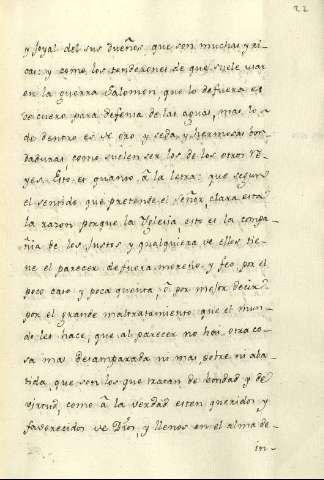 22
y joyas del sus dueños que son muchas y ri-
cas: y como los tendexones de que suele usar
en la guerra Salomon, que lo defuera es
de cuero para defensa de las aguas, mas lo
de dentro es de oro y seda, y hermosas bor-
daduras como suelen ser los de los otros Re-
yes. Esto es quanto â la letra: que segun
el sentido que pretende el Señor, clara està
la razon porque la Yglesia, esto es la compa-
ñia de los Justos y qualquiera de ellos tie-
ne el parecer defuera moreno y feo, por el
poco caso y poca quenta, ô por mejor decir
por el grande maltratamiento que el mun-
do les hace, que al parecer no hai otra co-
sa mas desamparada ni mas pobre ni aba-
tida, que son los que tratan de bondad y de
virtud, como â la verdad esten queridos y
favorecidos de Dios, y llenos en el alma de
in-